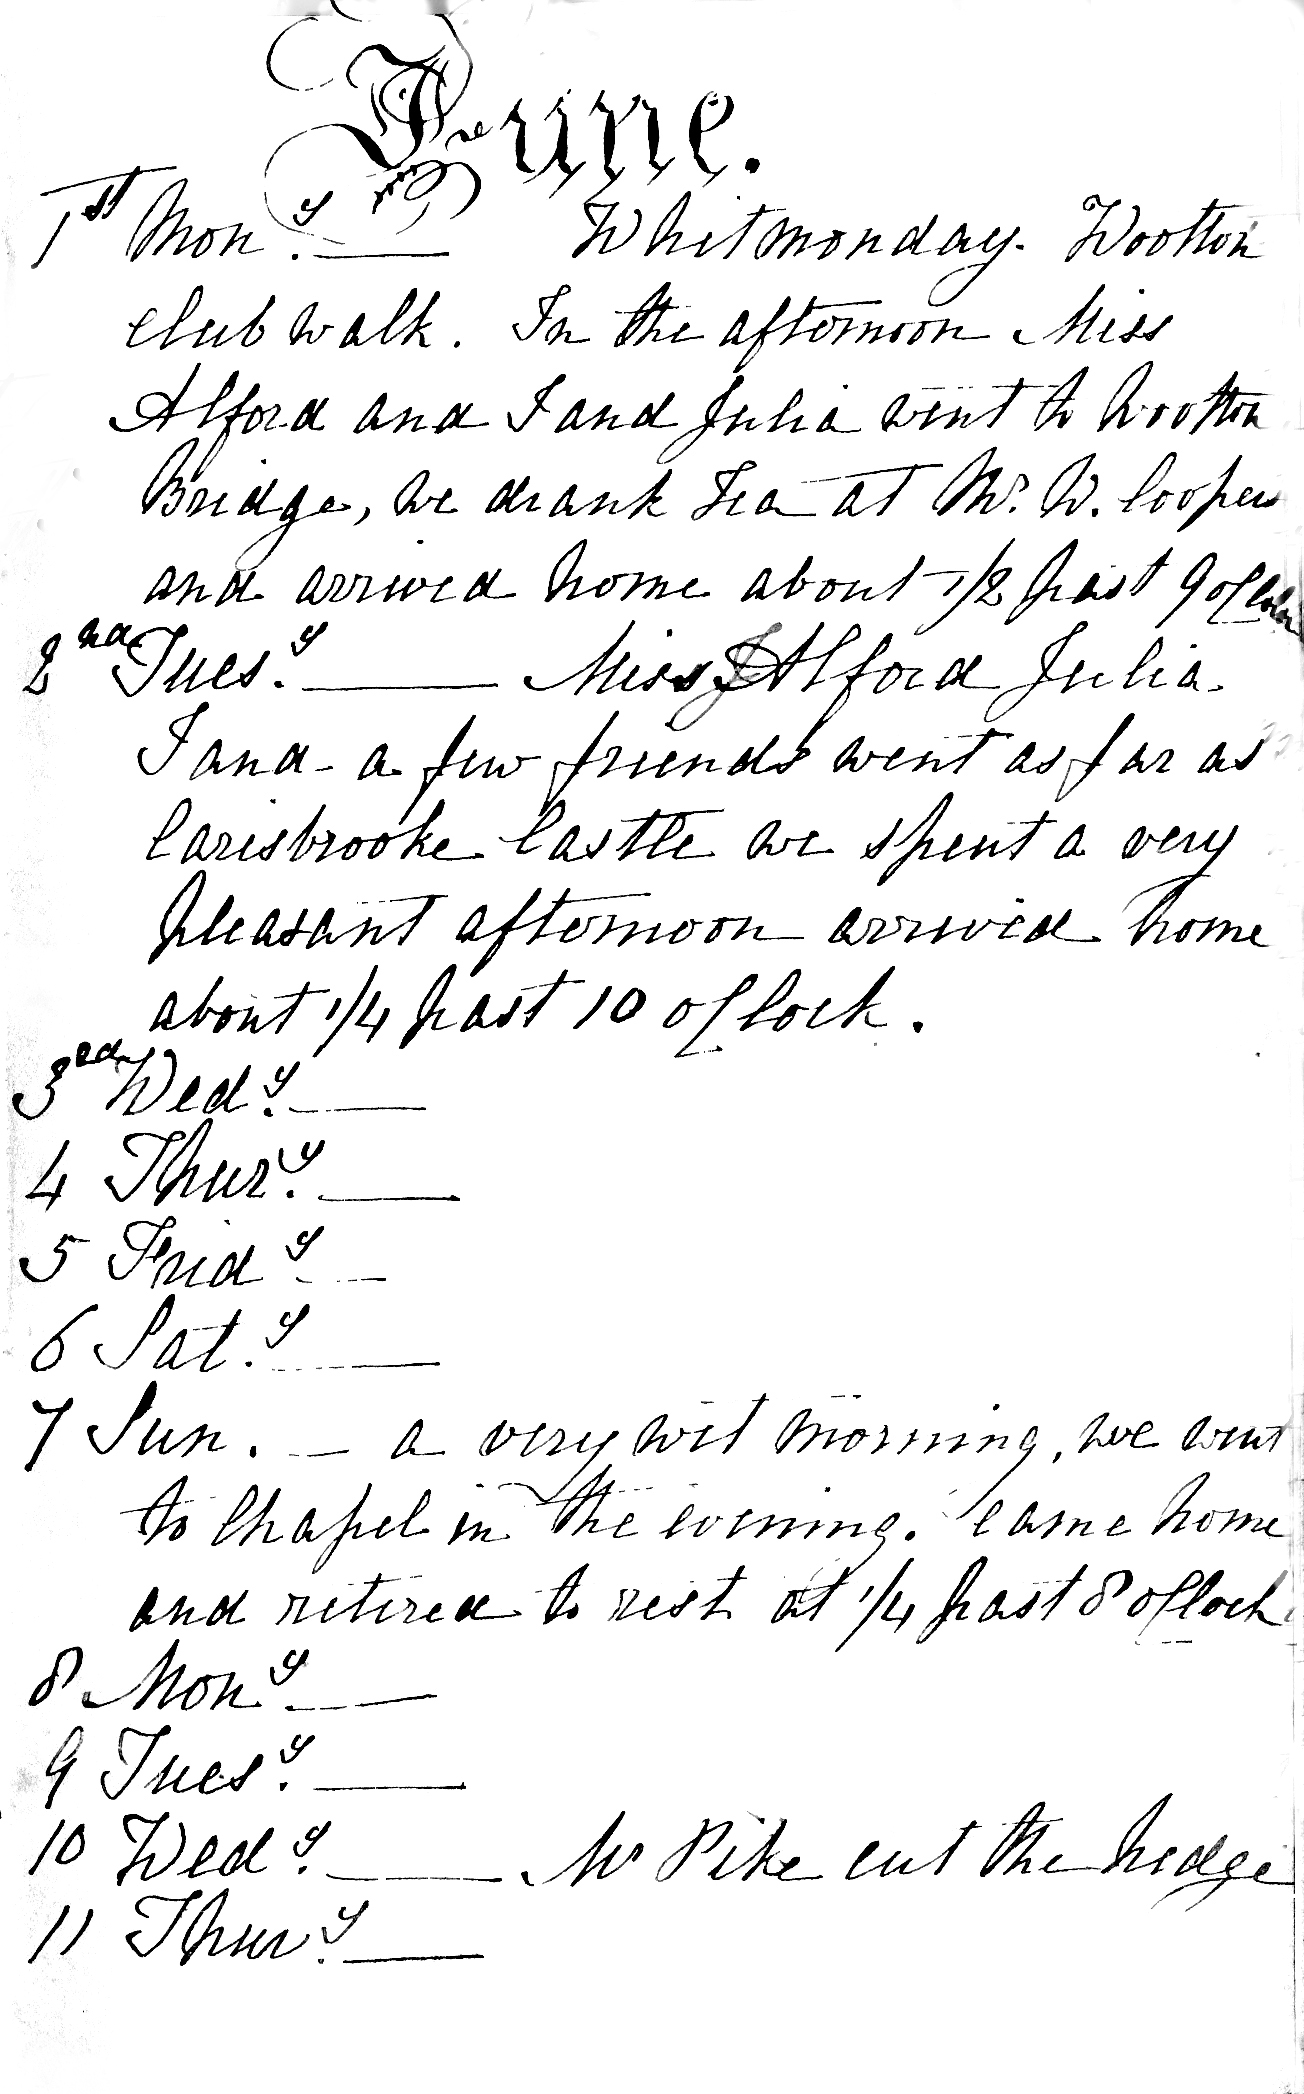 June.
1st Mon.y — Whitmonday. Wootton
club walk. In the afternoon Miss
Alford and I and Julia went to Wootton
Bridge, we drank Tea at Mr. W. Coopers
and arrived home about 1/2 past 9 oClock
2nd Tues.y — Miss Alford Julia.
I and a few friends went as far as
Carisbrooke Castle we spent a very
pleasant afternoon arrived home
about 1/4 past 10 oClock.
3rd Wed.y —
4 Thur.y —
5 Frid.y —
6 Sat.y —
7 Sun. — a very wet morning, we went
to Chapel in the evening. Came home
and retired to rest at 1/4 past 8 oClock
8 Mon.y —
9 Tues.y —
10 Wed.y — Mr Pike cut the hedge
11 Thur.y —